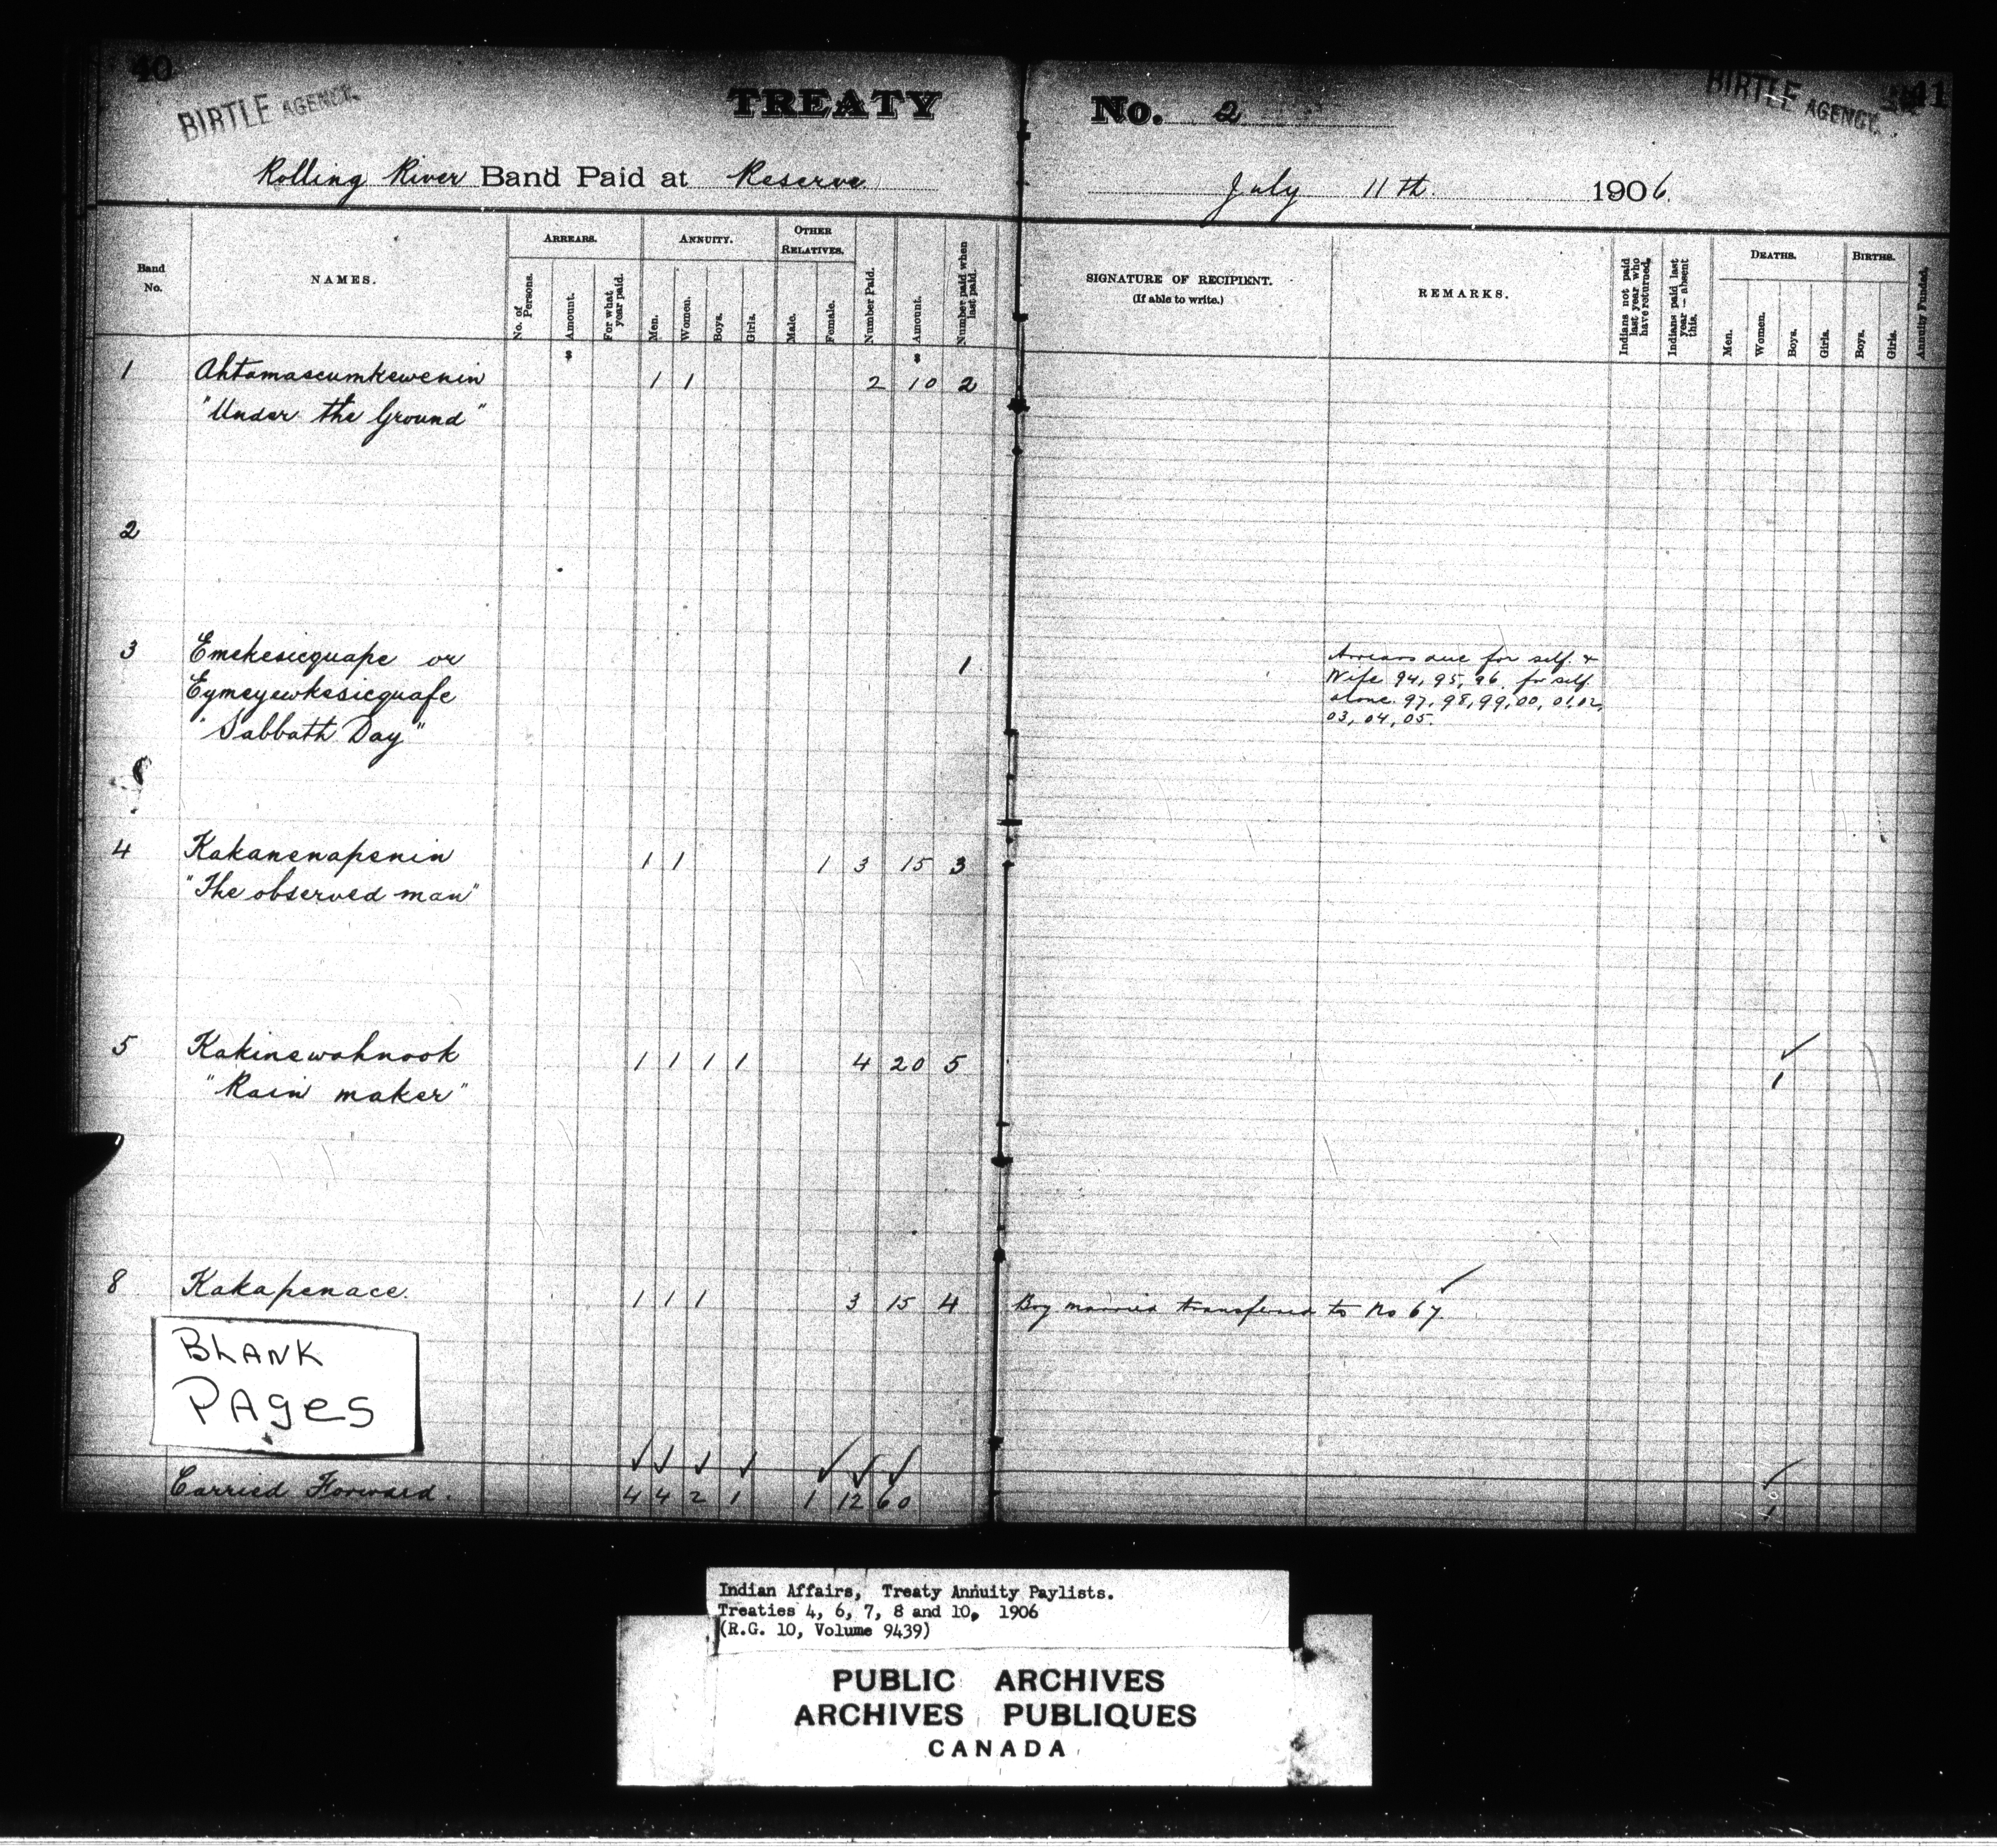 40
BIRTLE AGENCY.
TREATY No. 2
BIRTLE AGENCY.
41
Rolling River Band Paid at Reserve
July 11th. 1906.
Band No.
NAMES.
ARREARS.
No. of Persons.
Amount.
For what year paid.
ANNUITY.
Men.
Women.
Boys.
Girls.
OTHER RELATIVES.
Male.
Female.
Number Paid.
Amount.
Number paid when last paid.
SIGNATURE OF RECIPIENT.
(If able to write.)
REMARKS.
Indians not paid last year who have returned.
Indians paid last year — absent this.
DEATHS.
Men.
Women.
Boys.
Girls.
BIRTHS.
Boys.
Girls.
Annuity Funded.
$ $
1 Ahtamascumkewenin 1 1 2 10 2
"Under the Ground"
2
3 Emekesicquape or 1
Eymeyewkesicquape
"Sabbath Day"
Arrears due for self &
Wife 94, 95, 96, for self
alone 97, 98, 99, 00, 01, 02,
03, 04, 05.
4 Kakanenapenin 1 1 1 3 15 3
"The observed man"
5 Kakinewahnook 1 1 1 1 4 20 5 1
"Rain maker"
8 Kakapenace. 1 1 1 3 15 4 Boy married transferred to No 67.
BLANK
PAges
Carried Forward. 4 4 2 1 1 12 60 1
Indian Affairs, Treaty Annuity Paylists.
Treaties 4, 6, 7, 8 and 10, 1906
(R.G. 10, Volume 9439)
PUBLIC ARCHIVES
ARCHIVES PUBLIQUES
CANADA